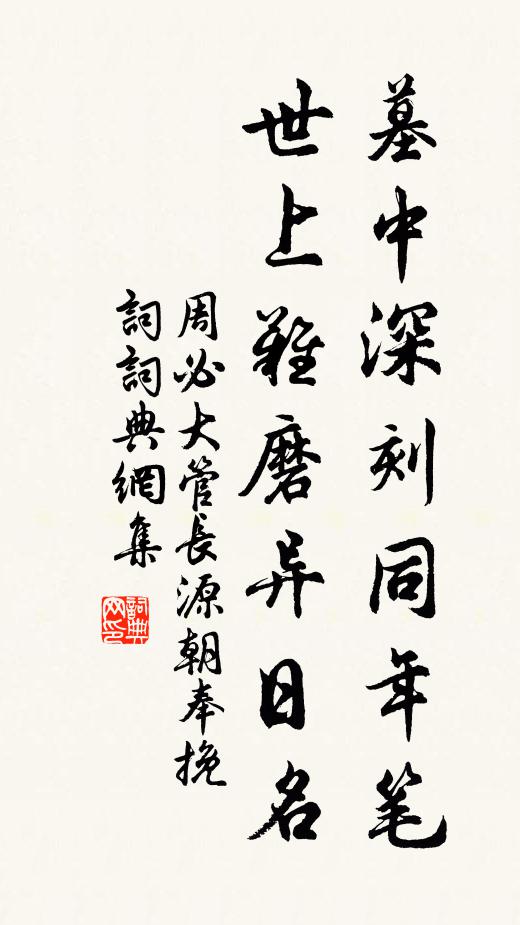 墓中深刻同年笔
世上難磨异日名
周必大管長源朝奉挽
詞詞典網集
詞典
网印